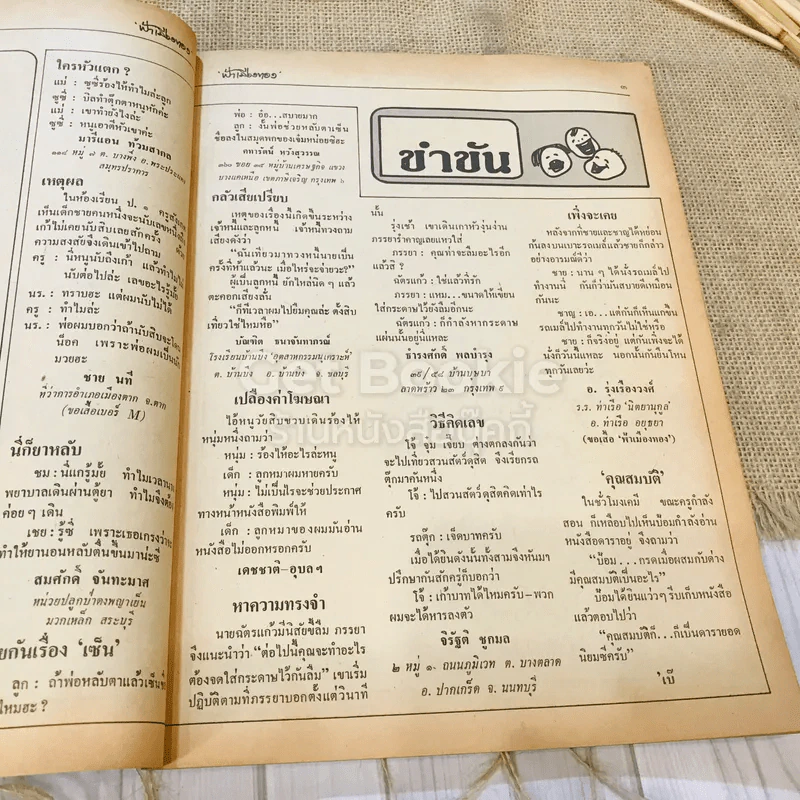 ฟ้าเมืองทอง
ใครหัวแตก ?
แม่ : ซูซี่ร้องไห้ทำไมล่ะลูก
ซูซี่ : บิลทำตุ๊กตาหนูหักค่ะ
แม่ : เขาทำยังไงล่ะ
ซูซี่ : หนูเอาตีหัวเขาค่ะ
มารีแอน ท้วมสากล
๑๑๙ หมู่ ๗ ต. บางพึ่ง อ. พระประแดง
สมุทรปราการ
เหตุผล
ในห้องเรียน ป. ๑ ครูสังเกต
เห็นเด็กชายคนหนึ่งจะนับเลขหนึ่งถึง
เก้าไม่เคยนับสิบเลยสักครั้ง ด้วย
ความสงสัยจึงเดินเข้าไปถาม
ครู : นี่หนูนับถึงเก้า แล้วทำไมไม่
นับต่อไปล่ะ เลขอะไรรู้มั้ย
นร. : ทราบฮะ แต่ผมนับไม่ได้
ครู : ทำไมล่ะ
นร. : พ่อผมบอกว่าถ้านับสิบจะโดน
น็อค เพราะพ่อผมเป็นนัก
มวยฮะ
ชาย นที
ที่ว่าการอำเภอเมืองตาก จ.ตาก
(ขอเสื้อเบอร์ M)
นี่ก็ยาหลับ
ชม : นี่แกรู้มั้ย ทำไมเวลานาง
พยาบาลเดินผ่านตู้ยา ทำไมจึงต้อง
ค่อย ๆ เดิน
เชย : รู้ซี่ เพราะเธอเกรงว่าจะ
ทำให้ยานอนหลับตื่นขึ้นมาน่ะซี
สมศักดิ์ จันทะมาศ
หน่วยปลูกป่าดงพญาเย็น
มวกเหล็ก สระบุรี
ยกันเรื่อง 'เซ็น'
ลูก : ถ้าพ่อหลับตาแล้วเซ็นชื่อ
ไหมฮะ ?
ฟ้าเมืองทอง
๓
พ่อ : อ๋อ...สบายมาก
ลูก : งั้นพ่อช่วยหลับตาเซ็น
ชื่อลงในสมุดพกของเข้มหน่อยซิฮะ
คทารัตน์ หวังสุวรรณ
๓๖๐ ซอย ๓๙ หมู่บ้านเศรษฐกิจ แขวง
บางแคเหนือ เขตภาษีเจริญ กรุงเทพ ๖
กลัวเสียเปรียบ
เหตุของเรื่องนี้เกิดขึ้นระหว่าง
เจ้าหนี้และลูกหนี้ เจ้าหนี้ทวงถาม
เสียงดังว่า
"ฉันเที่ยวมาทวงหนี้นายเป็น
ครั้งที่ห้าแล้วนะ เมื่อไหร่จะจ่ายวะ?"
ผู้เป็นลูกหนี้ ยักไหล่นิด ๆ แล้ว
ตะคอกเสียงลั่น
"ก็ทีเวลาผมไปยืมคุณล่ะ ตั้งสิบ
เที่ยวใช่ไหมหือ"
บัณฑิต ธนาจันทาภรณ์
โรงเรียนบ้านบึง 'อุตสาหกรรมนุเคราะห์'
ต. บ้านบึง อ. บ้านบึง จ. ชลบุรี
เปลืองค่าโฆษณา
ไอ้หนูวัยสิบขวบเดินร้องไห้
หนุ่มหนึ่งถามว่า
หนุ่ม : ร้องไห้อะไรล่ะหนู
เด็ก : ลูกหมาผมหายครับ
หนุ่ม : ไม่เป็นไรจะช่วยประกาศ
ทางหน้าหนังสือพิมพ์ให้
เด็ก : ลูกหมาของผมมันอ่าน
หนังสือไม่ออกหรอกครับ
เดชชาติ-อุบลฯ
หาความทรงจำ
นายฉัตรแก้วมีนิสัยขี้ลืม ภรรยา
จึงแนะนำว่า "ต่อไปนี้คุณจะทำอะไร
ต้องจดใส่กระดาษไว้กันลืม" เขาเริ่ม
ปฏิบัติตามที่ภรรยาบอกตั้งแต่วินาที
ขำขัน
นั้น
รุ่งเช้า เขาเดินเกาหัวงุ่นง่าน
ภรรยารำคาญเลยแหวใส่
ภรรยา : คุณทำจะลืมอะไรอีก
แล้วสิ ?
ฉัตรแก้ว : ใช่แล้วที่รัก
ภรรยา : แหม...ขนาดให้เขียน
ใส่กระดาษไว้ยังลืมอีกนะ
ฉัตรแก้ว : ก็กำลังหากระดาษ
แผ่นนั้นอยู่นี่แหละ
ธำรงศักดิ์ พลบำรุง
๓๕/๕๔ บ้านบุษบา
ลาดพร้าว ๒๓ กรุงเทพ ๙
วิธีคิดเลข
โจ้ จุ่ม เจี๊ยบ ต่างตกลงกันว่า
จะไปเที่ยวสวนสัตว์ดุสิต จึงเรียกรถ
ตุ๊กมาคันหนึ่ง
โจ้ : ไปสวนสัตว์ดุสิตคิดเท่าไร
ครับ
รถตุ๊ก : เจ็ดบาทครับ
เมื่อได้ยินดังนั้นทั้งสามจึงหันมา
ปรึกษากันสักครู่ก็บอกว่า
โจ้ : เก้าบาทได้ไหมครับ-พวก
ผมจะได้หารลงตัว
จิรัฐติ ชูกมล
๒ หมู่ ๑ ถนนภูมิเวท ต. บางตลาด
อ. ปากเกร็ด จ. นนทบุรี
เพิ่งจะเคย
หลังจากที่ชายและชาญได้หย่อน
ก้นลงบนเบาะรถเมล์แล้วชายก็กล่าว
อย่างอารมณ์ดีว่า
ชาย : นาน ๆ ได้นั่งรถเมล์ไป
ทำงานนี่ ก้นกว่ามันสบายดีเหมือน
กันนะ
ชาญ : เอ...แต่ก้นก็เห็นแกขึ้น
รถเมล์ไปทำงานทุกวันไม่ใช่หรือ
ชาย : ก็จริงอยู่ แต่ก้นเพิ่งจะได้
นั่งก็วันนี้แหละ นอกนั้นก้นยืนโหน
ทุกวันเลยว่ะ
อ. รุ่งเรืองวงศ์
ร.ร. ท่าเรือ 'นิตยานุกูล'
อ. ท่าเรือ อยุธยา
(ขอเสื้อ 'ฟ้าเมืองทอง')
'คุณสมบัติ'
ในชั่วโมงเคมี ขณะครูกำลัง
สอน ก็เหลือบไปเห็นป้อมกำลังอ่าน
หนังสือดาราอยู่ จึงถามว่า
"ป้อม...กรดเมื่อผสมกับด่าง
มีคุณสมบัติเป็นอะไร"
ป้อมได้ยินแว่ว ๆ รีบเก็บหนังสือ
แล้วตอบไปว่า
"คุณสมบัติก็...ก็เป็นดารายอด
นิยมซีครับ"
'เบ๊
Get Bookie
ร้านหนังสือบุ๊คกี้